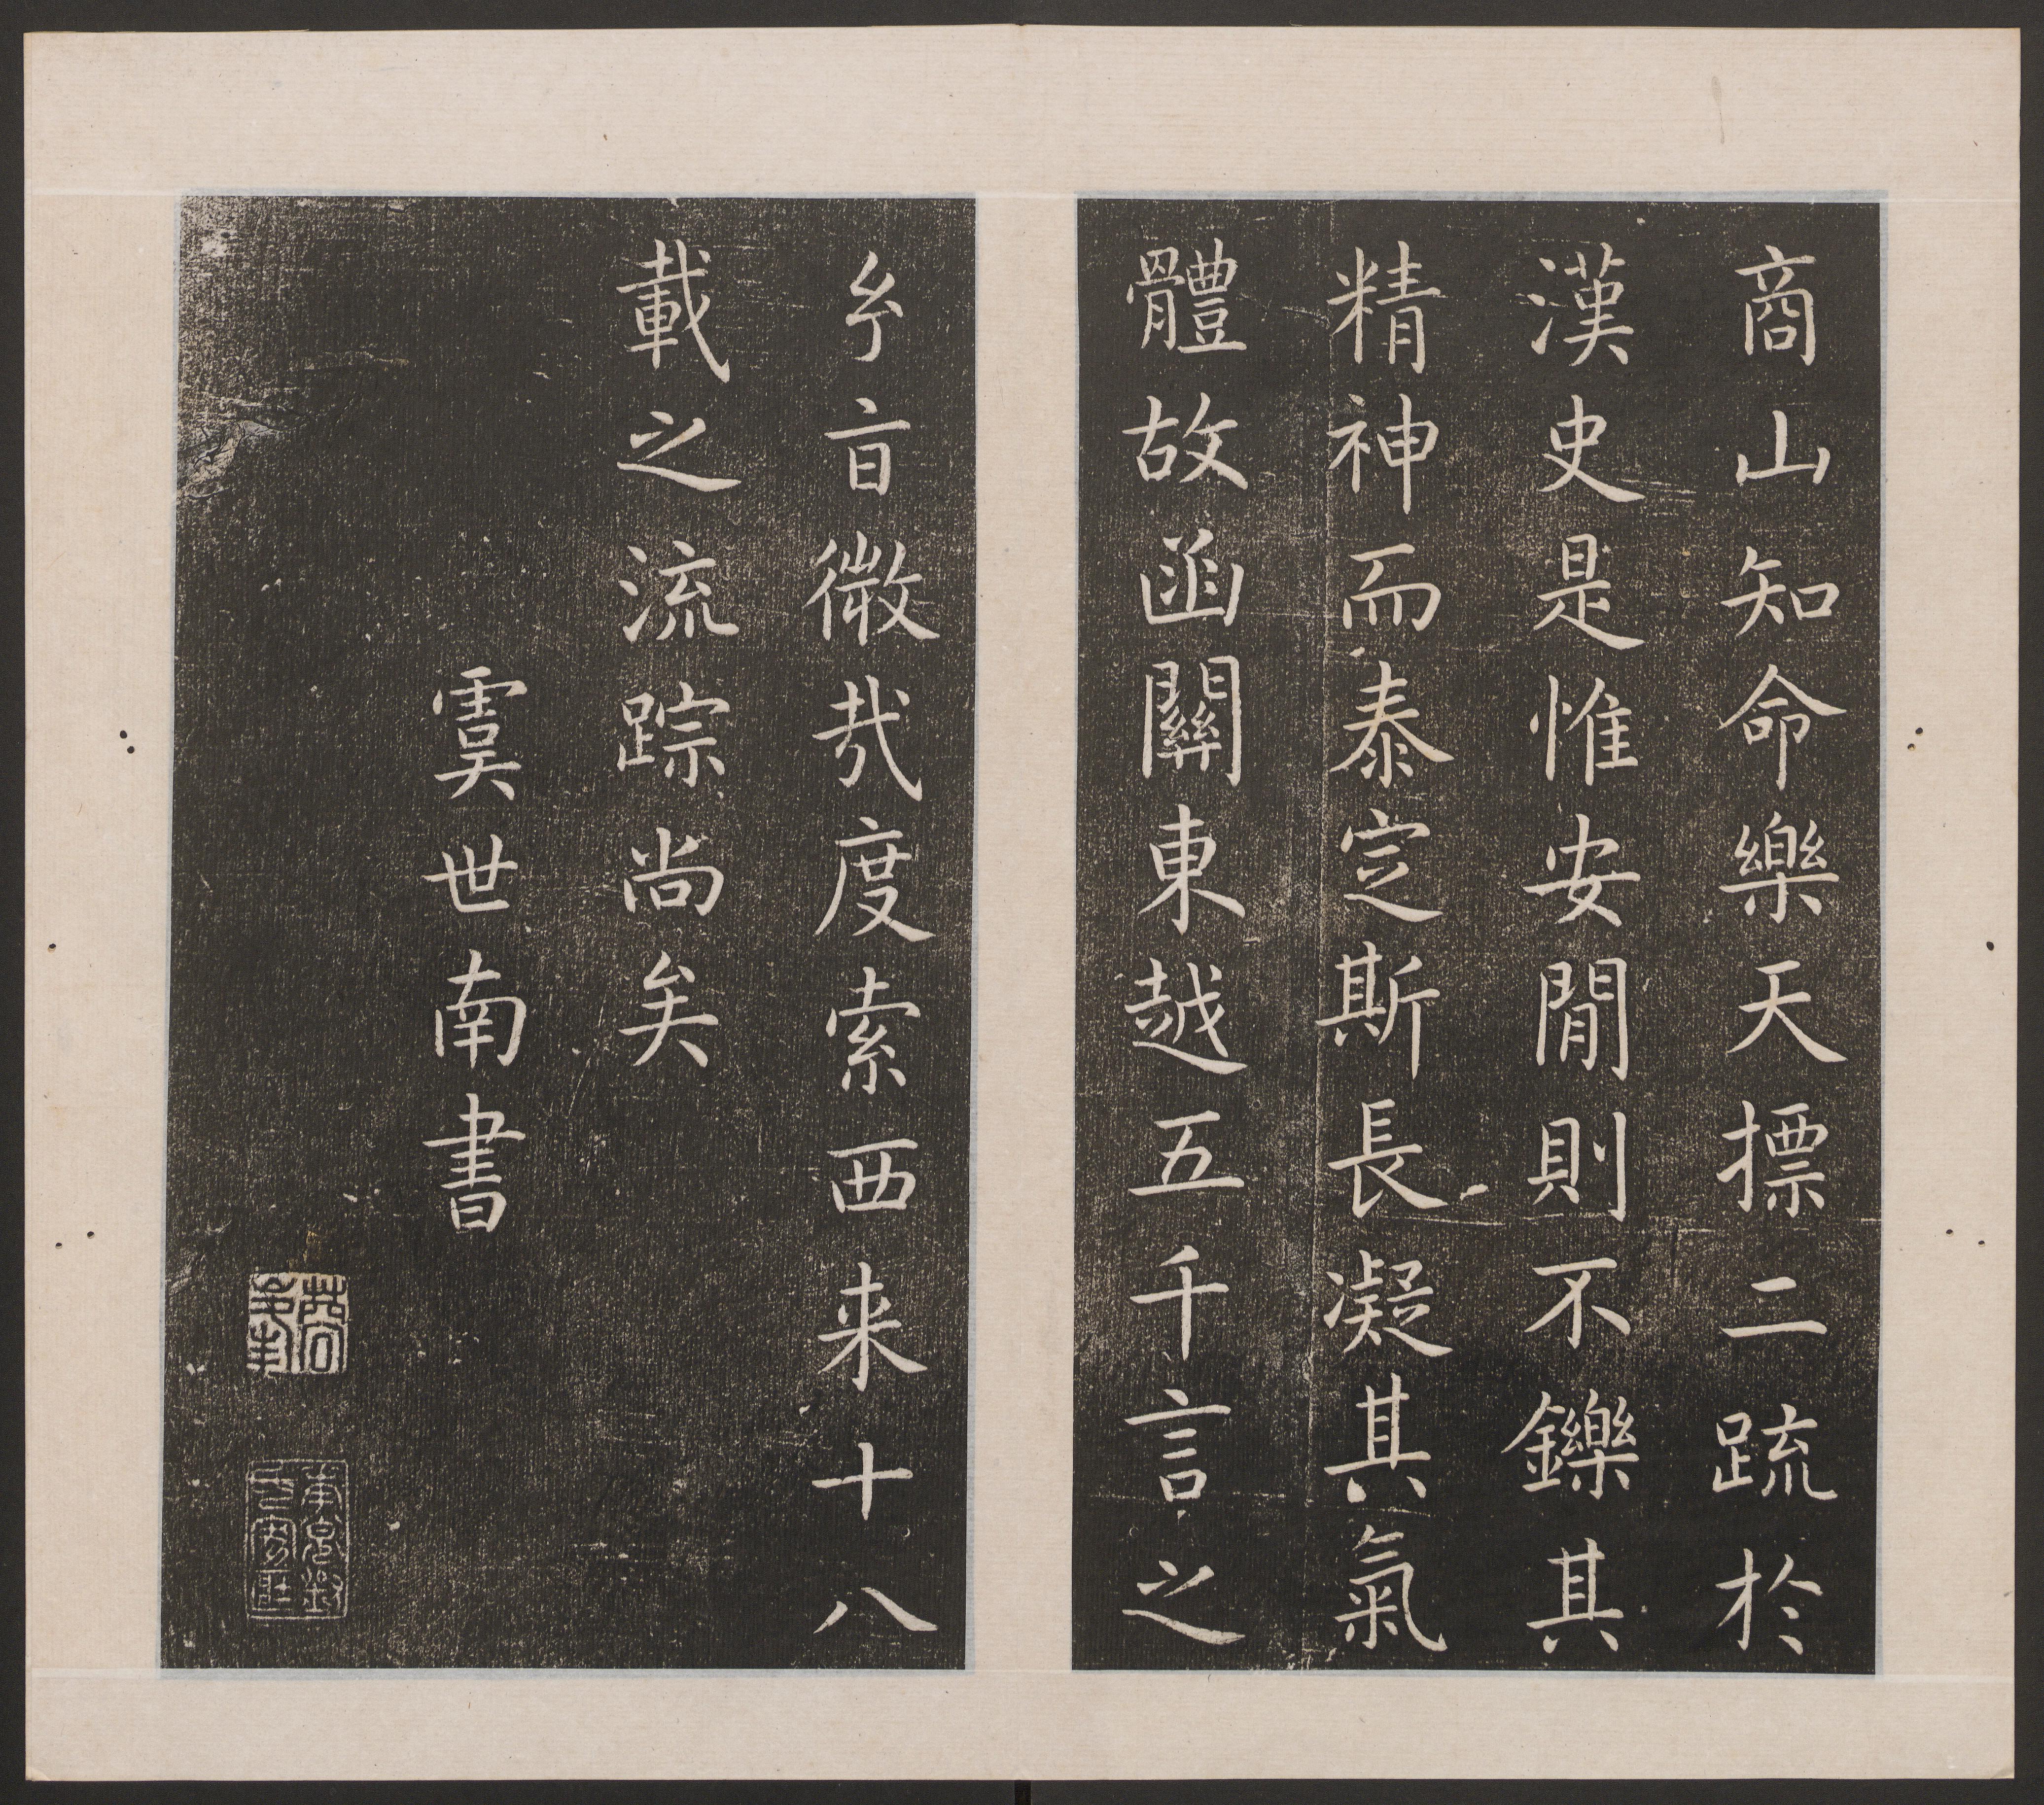 商山知命樂天摽二䟽於
漢史是惟安閒則不鑠其
精神而泰定斯長凝其氣
體故函關東越五千言之
㫖微哉度索西来十八
載之流踪尚矣
虞世南書